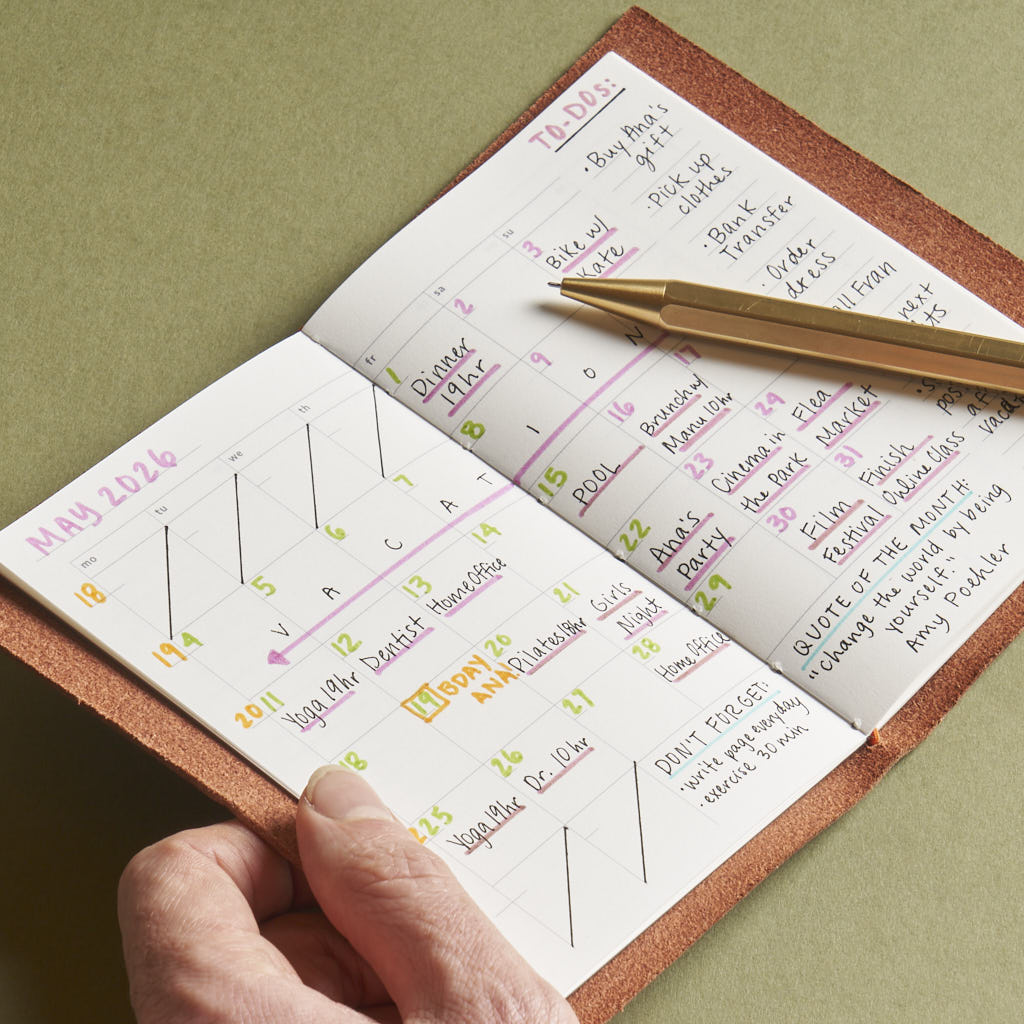 MAY 2026
mo
tu
we
th
fr
sa
su
18
1
Dinner
19hr
2
3
Bike w/
Kate
19
4
5
6
7
8
9
V A C A T I O N
20
11
Yoga 19hr
12
Dentist
13
Home Office
14
15
POOL
16
Brunch w/
Manu 10hr
17
18
19
BDAY
ANA!
20
Pilates 18hr
21
Girls
Night
22
Ana's
Party
23
Cinema in
the Park
24
Flea
Market
25
Yoga 19hr
26
Dr. 10hr
27
28
Home Office
29
30
Film
Festival
31
Finish
Online class
DON'T FORGET:
• write page everyday
• exercise 30 min
TO-DOS:
• Buy Ana's
gift
• Pick up
clothes
• Bank
Transfer
• Order
dress
Fran
next
QUOTE OF THE MONTH:
"Change the world by being
yourself."
Amy Poehler